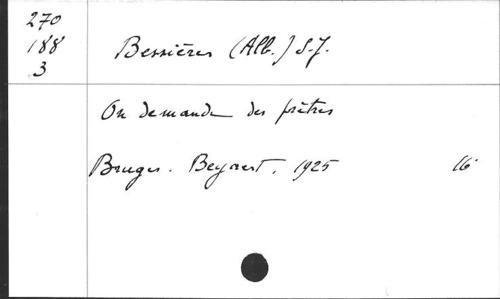 270
188
3
Bessières (Alb.) S.J.
On demande des prêtres
Bruges. Beyaert, 1925 16°